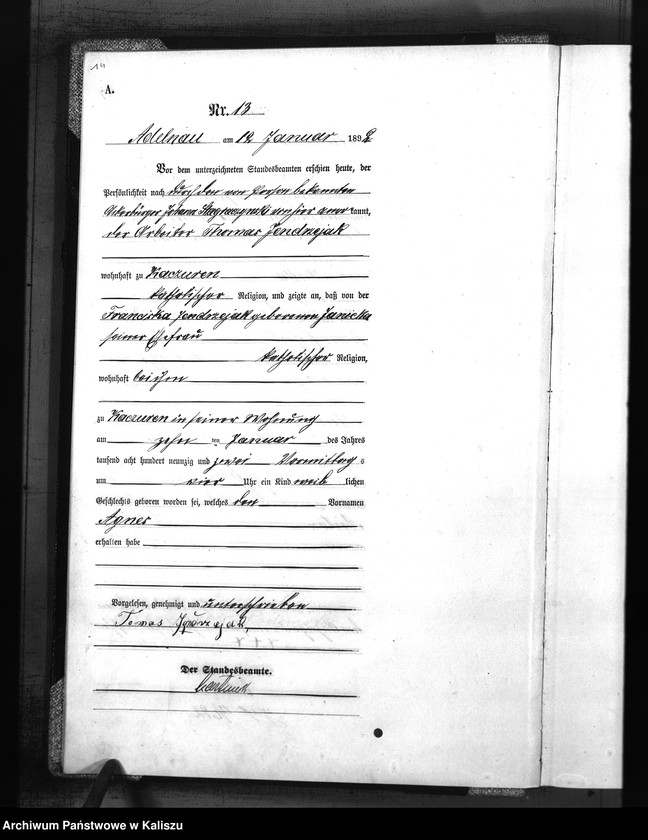 14
A.
Nr. 13
Adelnau am 12 Januar 1892
Vor dem unterzeichneten Standesbeamten erschien heute, der
Persönlichkeit nach durch den von Person bekannten
Ackerbürger Johann anerkannt,
der Arbeiter Thomas Jendrzejak
wohnhaft zu Kaczuren
katholischer Religion, und zeigte an, daß von der
Franciska Jendrzejak geborenen Janicka
seiner Ehefrau
katholischer Religion,
wohnhaft bei ihm
zu Kaczuren in seiner Wohnung
am zehn ten Januar des Jahres
tausend acht hundert neunzig und zwei Vormittag s
um vier Uhr ein Kind weib lichen
Geschlechts geboren worden sei, welches den Vornamen
Agnes
erhalten habe
Vorgelesen, genehmigt und unterschrieben
Der Standesbeamte.
Archiwum Państwowe w Kaliszu